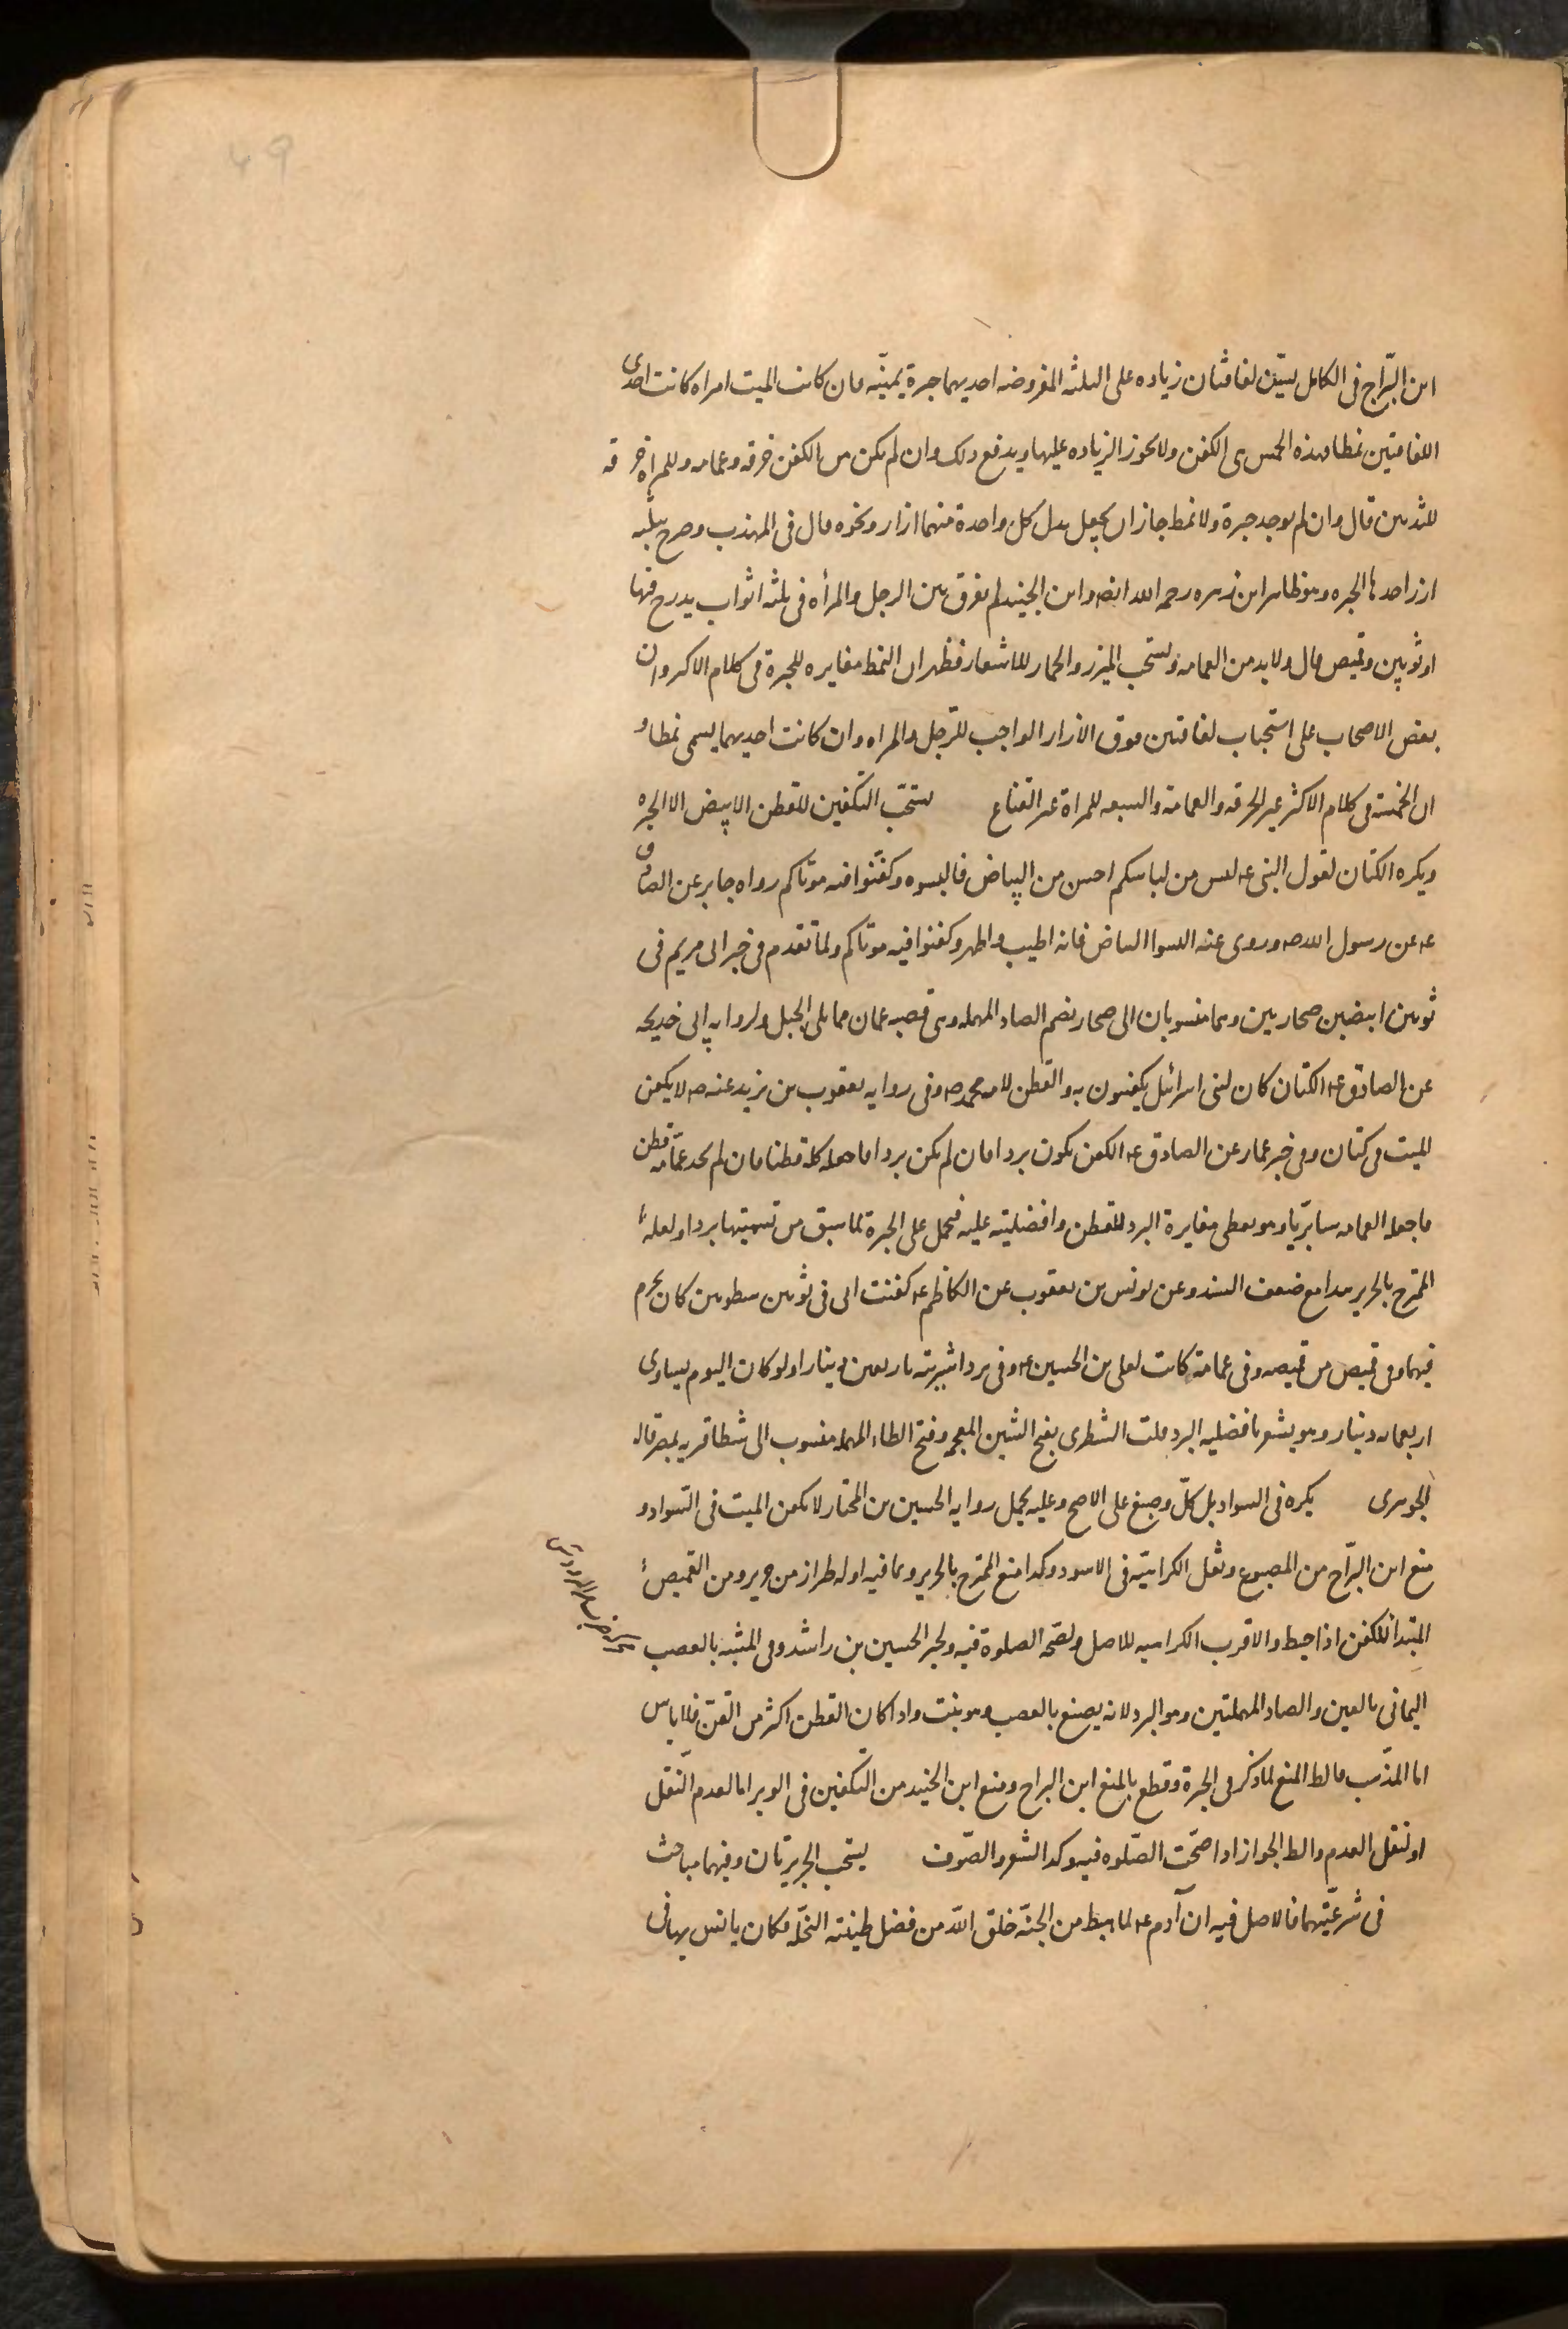 ابن البرّاج فى الكامل يسنّ لفافتان زياده على الثلثه المفروضه احديهما حبرة يمنيّه فان كانت الميت امراه كانت احدى
اللفافتين نمطا فهذه الخمس هى الكفن ولا يجوز الزياده عليها ويدفع ذلك وان لم يكن من الكفن خرقه وعمامه وللمراه خرقه
للثديين قال وان لم يوجد حبرة ولا نمط جاز ان يجعل بدل كل واحدة منهما ازار ونحوه قال فى المهذب وصرح بثلثه
ازر احدها الحبره وهو ظاهر ابن زهره رحمه الله ايضه وابن الجنيد لم يفرق بين الرجل والمرأه فى ثلثه اثواب يدرج فيها
او ثوبين وقميص قال ولا بد من العمامه ويستحب الميزر والخمار للاشعار فظهر ان النمط مغايره للحبرة فى كلام الاكثر وان
بعض الاصحاب على استحباب لفافتين فوق الازار الواجب للرجل والمراه وان كانت احديهما يسمى نمطا و
ان الخمسة فى كلام الاكثر غير الخرقه والعمامة والسبعه للمراة غير القناع يستحبّ التكفين للقطن الابيض الا الحبره
ويكره الكتان لقول النبى عه ليس من لباسكم احسن من البياض فالبسوه وكفّنوا فيه موتاكم رواه جابر عن الصادق
عه عن رسول الله صه وروى عنه البسوا البياض فانه اطيب واطهر وكفنوا فيه موتاكم ولما تقدم فى خبر ابى مريم فى
ثوبين ابيضين صحاريين وهما منسوبان الى صحار بضم الصاد المهمله وهى قصبه عمان مما يلى الجبل ولروايه ابى خديجه
عن الصادق عه الكتان كان لبنى اسرائل يكفنون به والقطن لامه محمد صه وفى روايه يعقوب بن يزيد عنه صه لا يكفن
الميت فى كتان وفى خبر عمار عن الصادق عه الكفن يكون بردا فان لم يكن بردا فاجعله كله قطنا فان لم تجد عمامه قطن
فاجعل العمامه سابريّا وهو يعطى مغايرة البرد للقطن وافضليته عليه فيحمل على الحبرة لما سبق من تسميتها بردا ولعله
الممتزج بالحرير هذا مع ضعف السند وعن يونس بن يعقوب عن الكاظم عه كفنت ابى فى ثوبين سطويين كان يحرم
فيهما وفى قميص من قميصه وفى عمامة كانت لعلى بن الحسين عه وفى برد اشتريته باربعين دينارا ولو كان اليوم يساوى
اربعمائه دينار وهو يشعر بافضليه البرد قلت الشطرى بفتح الشين المعجمه وفتح الطاء المهمله منسوب الى شطا قريه بمصر قاله
الجوهرى يكره فى السواد بل كلّ وصبغ على الاصح وعليه يحمل روايه الحسين بن المختار لا يكفن الميت فى السواد و
منع ابن البرّاج من المصبوغ ونقل الكراهيّه فى الاسود وكذا منع الممتزج بالحرير وما فيه اوله طراز من حرير ومن القميص
المبتدأ للكفن اذا خيط والاقرب الكراهيه للاصل ولصحه الصلوة فيه ولخبر الحسين بن راشد وفى المشبه بالعصب
اليمانى بالعين والصاد المهملتين وهو البرد لانه يصنع بالعصب وهو نبت واذا كان القطن اكثر من القزّ فلا باس
اما المذّهب فالظ المنع لما ذكر فى الحبرة وقطع بالمنع ابن البراج ومنع ابن الجنيد من التكفين فى الوبر اما لعدم النّقل
او لنقل العدم والظ الجواز اذا صحّت الصّلوه فيه وكذا الشعر والصّوف يستحب الجريدتان وفيهما مباحث
فى شرعيّتهما فالاصل فيه ان آدم عه لما اهبط من الجنّة خلق اللّه من فضل طينته النخّله فكان يانس بها فى